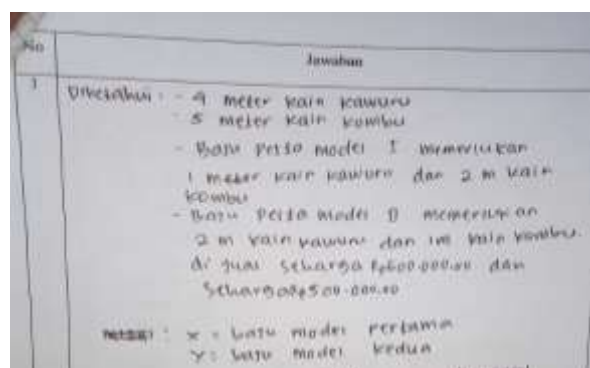 No
Jawaban
1
Diketahui : - 4 meter kain kawuru
- 5 meter kain kombu
- Baju pesta model I memerlukan
1 meter kain kawuru dan 2 m kain
kombu
- Baju pesta model II memerlukan
2 m kain kawuru dan 1m kain kombu.
di jual seharga Rp600.000.00 dan
seharga Rp500.000.00
x = baju model pertama
y : baju model kedua